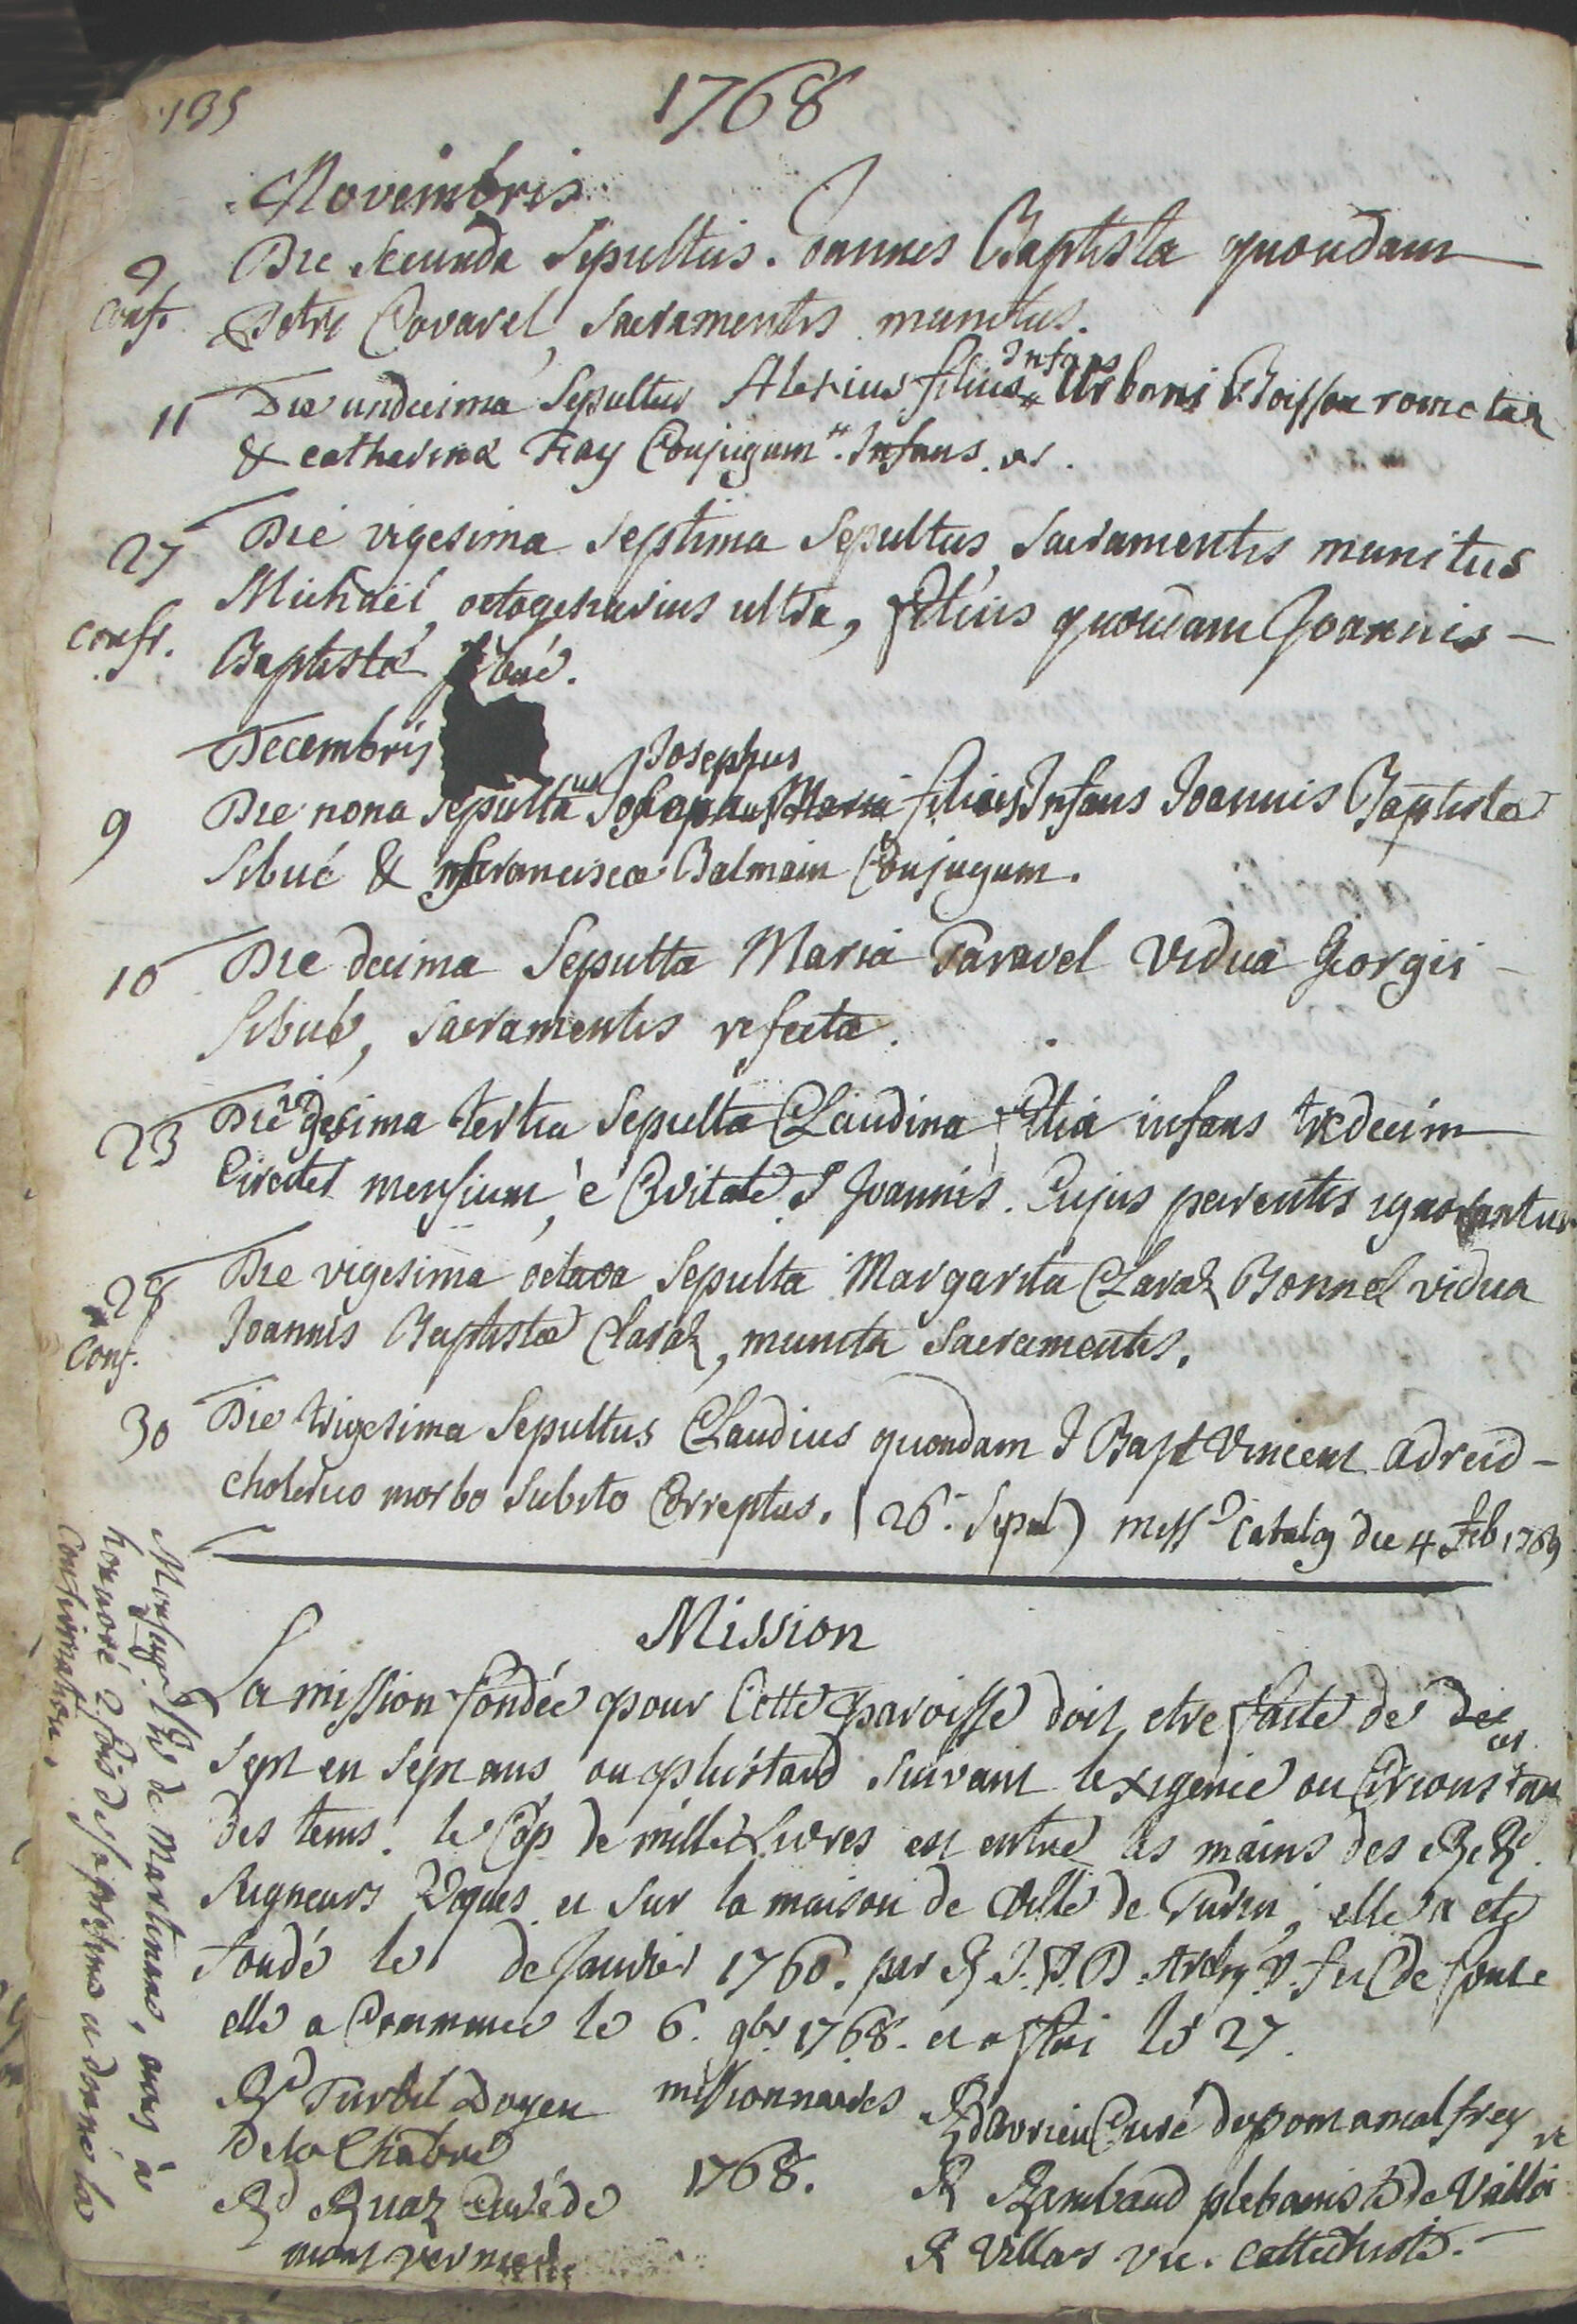 135
1768
Novembris
2 Die secunda Sepultus Joannes Baptista quondam
conf. Petri Covarel, Sacramentis munitus.
Infans
11 Die undecima Sepultus Alexius filius # Urbani Boisson rometaz
& catherinæ Fay Conjugum #. Infans.
27 Die vigesima septima Sepultus, Sacramentis munitus
Michaël, octogenarius ultra, filius quondam Joannis -
confr. Baptistæ Sibué.
Decembris
Josephus
9 Die nona Sepultus filius Infans Joannis Baptistæ
Sibué & francisca Balmain Conjugum.
10 Die decima Sepulta Maria Taravel vidua Georgii -
Sibué, Sacramentis refecta.
23 Die vigesima tertia Sepulta Claudina filia infans tredecim
Circiter mensium, è Civitate S Joannis. Cujus parentes ignorantur
28 Die vigesima octava Sepulta Margarita Claraz Bonnel vidua
conf. Joannis Baptistæ Claraz, munita Sacramentis.
30 Die trigesima Sepultus Claudius quondam J Bapt Vincent adreid -
cholerico morbo subito Correptus. (26. Sepul) miss catalog die 4 Feb 1769
Mission
La mission fondée pour Cette paroisse doit etre faite de
Sept en Sept ans ou plustard suivant lexigence ou Circonstan
des tems. le Cap de mille Livres est entre les mains des RdRd
Seigneurs et sur la maison de ville de Turin; elle a eté
fondé le de Janvier 1760. par R J. B. fu de
elle a Commencé le 6. 9br 1768. et a fini le 27.
Rd Turbil Doyen missionnaires R davrieu Curé de pomamalfrey
De la Chabre
Rd Ruaz Curé de 1768. R Rambaud plebaniste de Valloi
mont vernied. R Villar vic. cattechiste.
Monseigr de Martiniane, nous à
honnoré 2 fois desa presence et donné la
Confirmation.